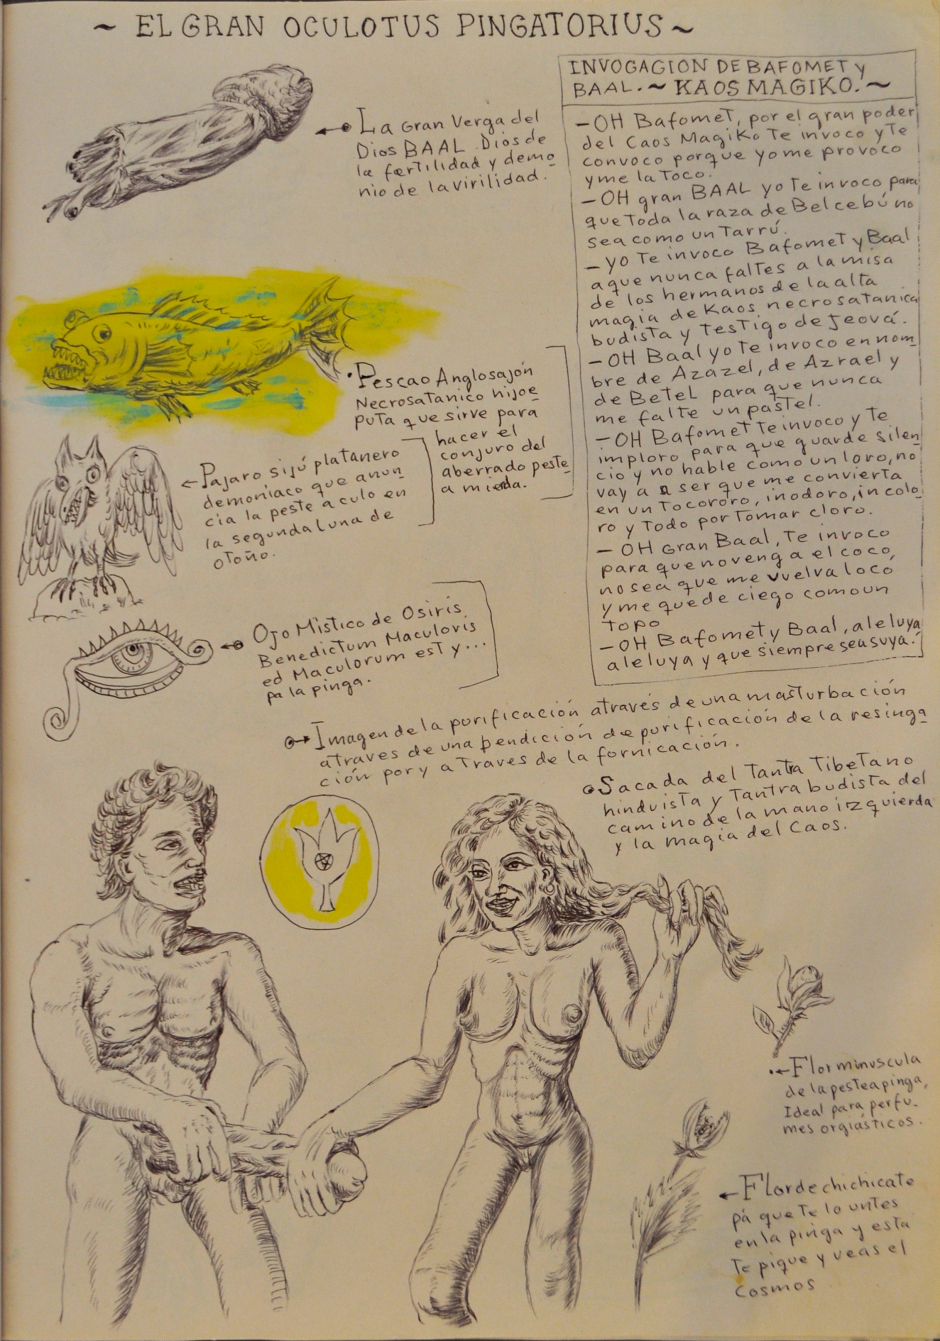 ~ EL GRAN OCULOTUS PINGATORIUS ~
La Gran Verga del
Dios BAAL. Dios de
la fertilidad y demo
nio de la virilidad.
INVOGACION DE BAFOMET y
BAAL. ~ KAOS MAGIKO. ~
- OH Bafomet, por el gran poder
del Caos Magiko Te invoco y Te
convoco porque yo me provoco
y me la Toco.
- OH gran BAAL yo Te invoco para
que Toda la raza de Belcebú no
sea como un Tarrú.
- yo Te invoco Bafomet y Baal
a que nunca faltes a la misa
de los hermanos de la alta
magia de Kaos necrosatanica
budista y Testigo de Jeová.
- OH Baal yo Te invoco en nom
bre de Azazel, de Azrael y
de Betel para que nunca
me falte un pastel.
- OH Bafomet Te invoco y Te
imploro para que guarde silen
cio y no hable como un loro, no
vay a a ser que me convierta
en un Tocororo, inodoro, incolo
ro y Todo por Tomar cloro.
- OH Gran Baal, Te invoco
para que no venga el coco,
no sea que me vuelva loco
y me quede ciego como un
Topo
- OH Bafomet y Baal, aleluya
aleluya y que siempre sea suya.
Pescao Anglosajón
Necrosatanico hijoe
puta que sirve para
hacer el
conjuro del
aberrado peste
a mierda.
Pajaro sijú platanero
demoniaco que anun
cia la peste a culo en
la segunda Luna de
otoño.
Ojo Mistico de Osiris
Benedictum Maculovis
ed Maculorum est y...
pa la pinga.
Imagen de la purificación através de una masturbación
através de una bendición de purificación de la resinga
ción por y a Traves de la fornicación.
Sacada del Tantra Tibetano
hinduista y Tantra budista del
camino de la mano izquierda
y la magia del Caos.
Flor minuscula
de la peste a pinga,
Ideal para perfu-
mes orgiasticos.
Flor de chichicate
pá que Te lo untes
en la pinga y esta
Te pique y veas el
Cosmos